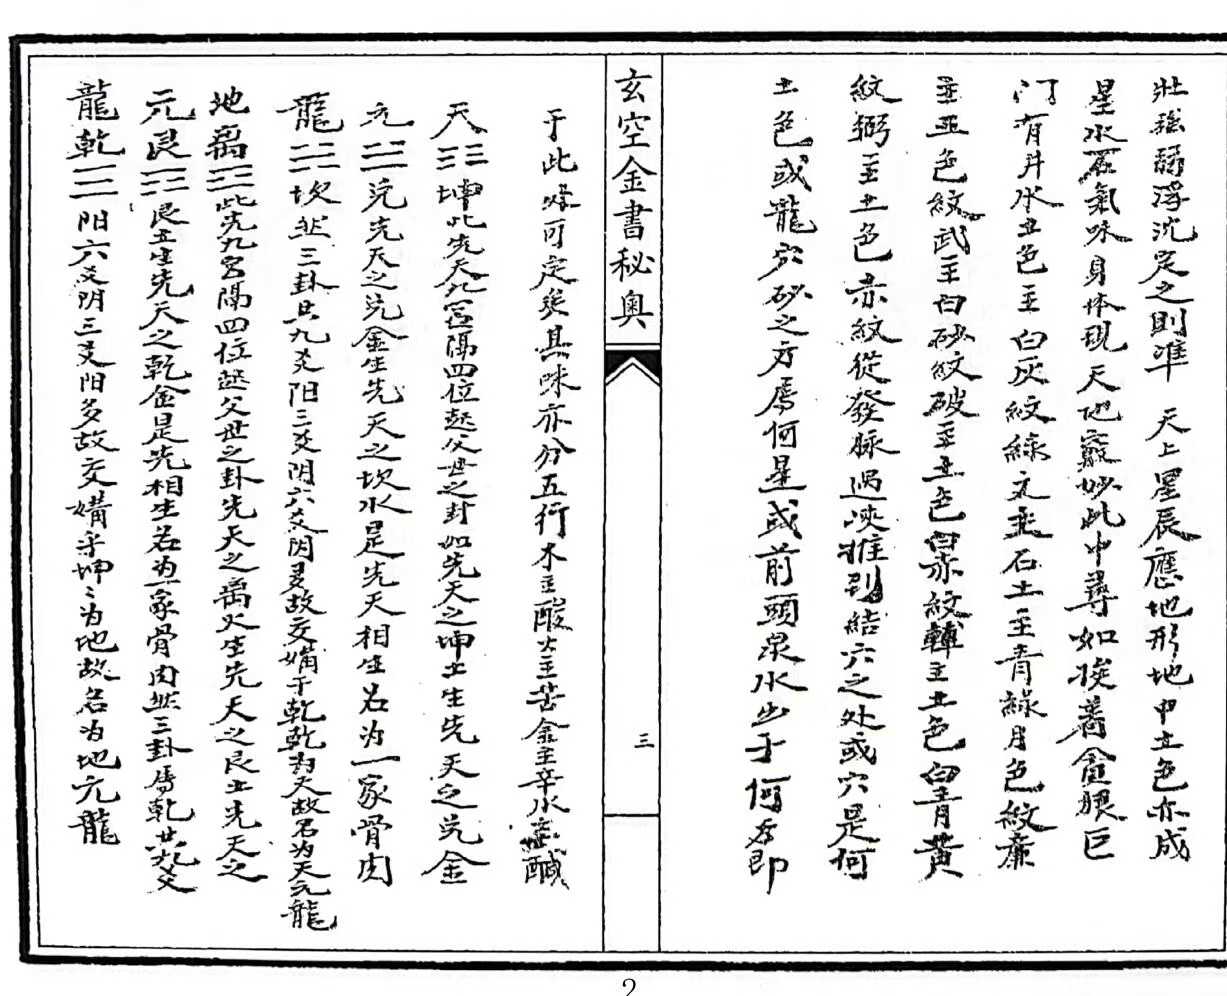 壯強弱浮沉定之則準 天上星辰應地形地中五色亦成
星水石氣味身体現天地竅妙此中尋如後著貪狼巨
门有斗水五色主白灰紋綠文主石土主青綠月色紋廉
主五色紋武主白砂紋破主五色白赤紋輔主土色白青黄
紋弼主土色赤紋從發脉過峽推到結穴之处或穴是何
土色或龍穴砂之方属何星或前頭泉水出于何方即
玄空金書秘奧
三
于此可定矣其味亦分五行木主酸火主苦金主辛水主鹹
天☷坤此先天九宫隔四位起父世之卦如先天之坤土生先天之兑金
元☱兑先天之兑金生先天之坎水是先天相生名为一家骨肉
龍☵坎此三卦共九爻阳三爻阴六爻阴多故交媾于乾乾为天故名为天元龍
地離☲此先九宮隔四位起父世之卦先天之離火生先天之艮土先天之
元艮☶艮土生先天之乾金是先相生名为一家骨肉此三卦属乾共九爻
龍乾☰阳六爻阴三爻阳多故交媾于坤坤为地故名为地元龍
2